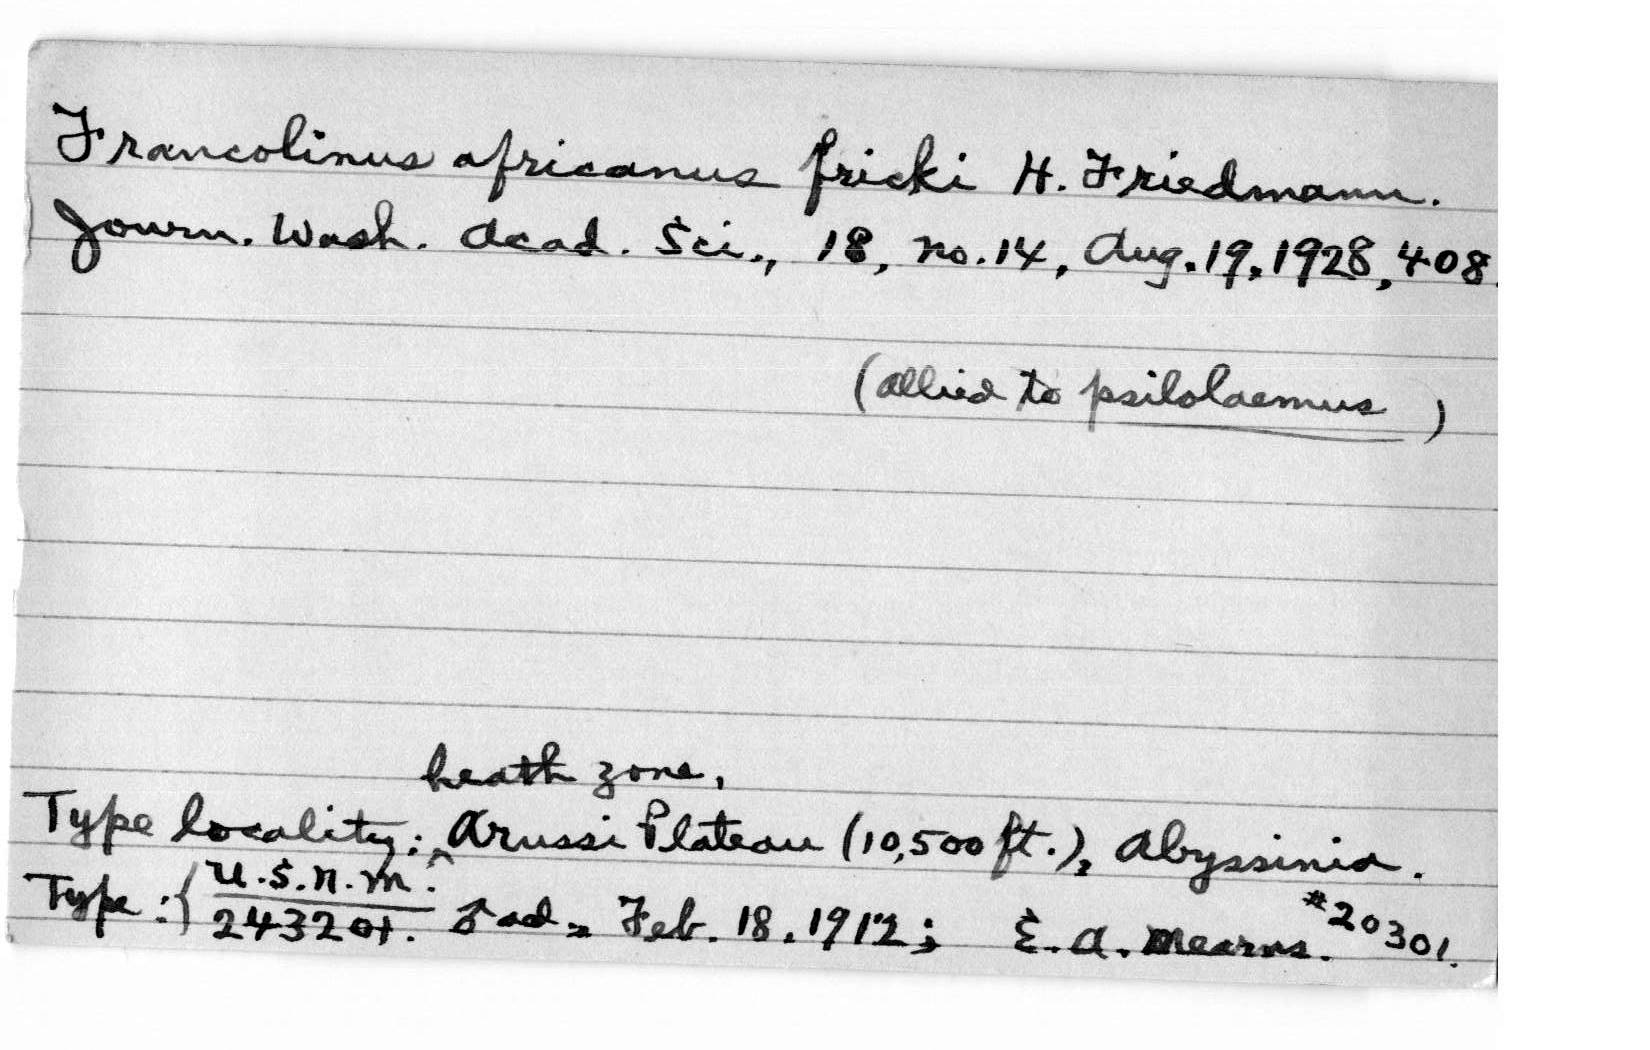 Francolinus africanus fricki H. Friedmann.
Journ. Wash. Acad. Sci., 18, no. 14, Aug. 19, 1928, 408.
(allied to psilolaemus)
heath zone,
Type locality: ^ Arussi Plateau (10,500 ft.), Abyssinia.
Type: { U.S.N.M.
♂ ad., Feb. 18, 1912; E. A. Mearns. #20301.